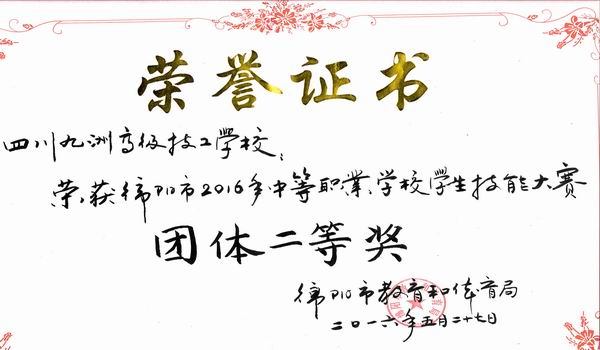 荣誉证书
四川九洲高级技工學校：
荣获绵阳市2016年中等职業学校学生技能大赛
团体二等奖
绵阳市教育和体育局
二〇一六年五月二十七日